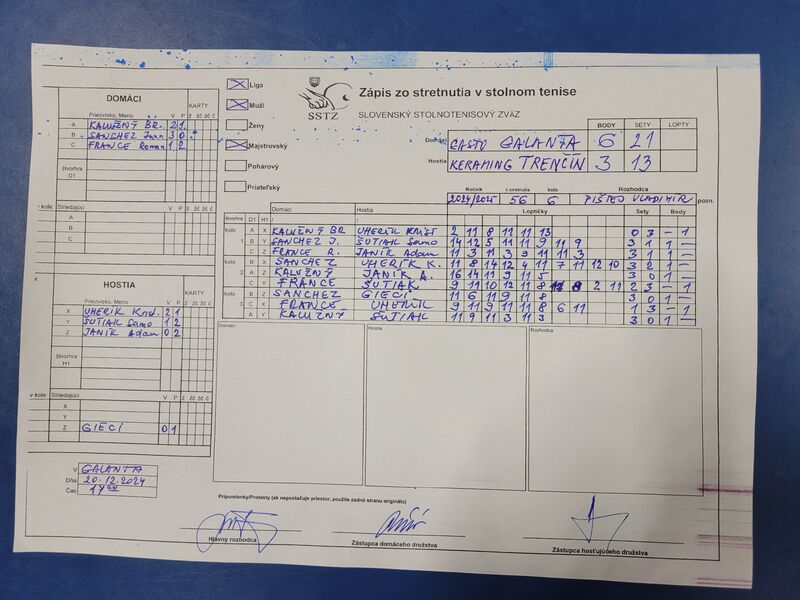 Zápis zo stretnutia v stolnom tenise
SLOVENSKÝ STOLNOTENISOVÝ ZVÄZ
SSTZ
Liga
Muži
Ženy
Majstrovský
Pohárový
Priateľský
BODY SETY LOPTY
Domáci GASTO GALANTA 6 21
Hostia KERAMING TRENČÍN 3 13
Ročník č.stretnutia kolo Rozhodca
2024/2025 56 6 PIŠTEJ VLADIMÍR pozn.
DOMÁCI
KARTY
Priezvisko, Meno V P
A KALUŽNÝ BR. 2 1
B SANCHEZ Juan 3 0
C FRANCE Roman 1 2
štvorhra
D1
v kole Striedajúci V P
A
B
C
HOSTIA
KARTY
Priezvisko, Meno V P
X UHERÍK Krist. 2 1
Y ŠUTIAK Samo 1 2
Z JANÍK Adam 0 2
štvorhra
H1
v kole Striedajúci V P
X
Y
Z GIECI 0 1
V GALANTA
Dňa 20.12.2024
Čas 17 00
Domáci Hostia Loptičky Sety Body
štvorhra D1 H1 / /
kolo A X KALUŽNÝ BR UHERÍK KRIST 2 11 8 11 11 13 0 3 – 1
1 B Y SANCHEZ J. ŠUTIAK Samo 14 12 5 11 11 9 11 9 3 1 1 –
C Z FRANCE R. JANÍK Adam 11 3 11 3 9 11 11 3 3 1 1 –
kolo B X SANCHEZ UHERÍK K. 11 8 14 12 4 11 7 11 12 10 3 2 1 –
2 A Z KALUŽNÝ JANÍK A. 16 14 11 9 11 5 3 0 1 –
C Y FRANCE ŠUTIAK 9 11 10 12 11 8 11 8 2 11 2 3 – 1
kolo B Z SANCHEZ GIECI 11 6 11 9 11 8 3 0 1 –
3 C X FRANCE UHERÍK 9 11 9 11 11 8 6 11 1 3 – 1
A Y KALUŽNÝ ŠUTIAK 11 9 11 3 11 3 3 0 1 –
Domáci Hostia Rozhodca
Pripomienky/Protesty (ak nepostačuje priestor, použite zadnú stranu originálu)
Hlavný rozhodca
Zástupca domáceho družstva
Zástupca hosťujúceho družstva